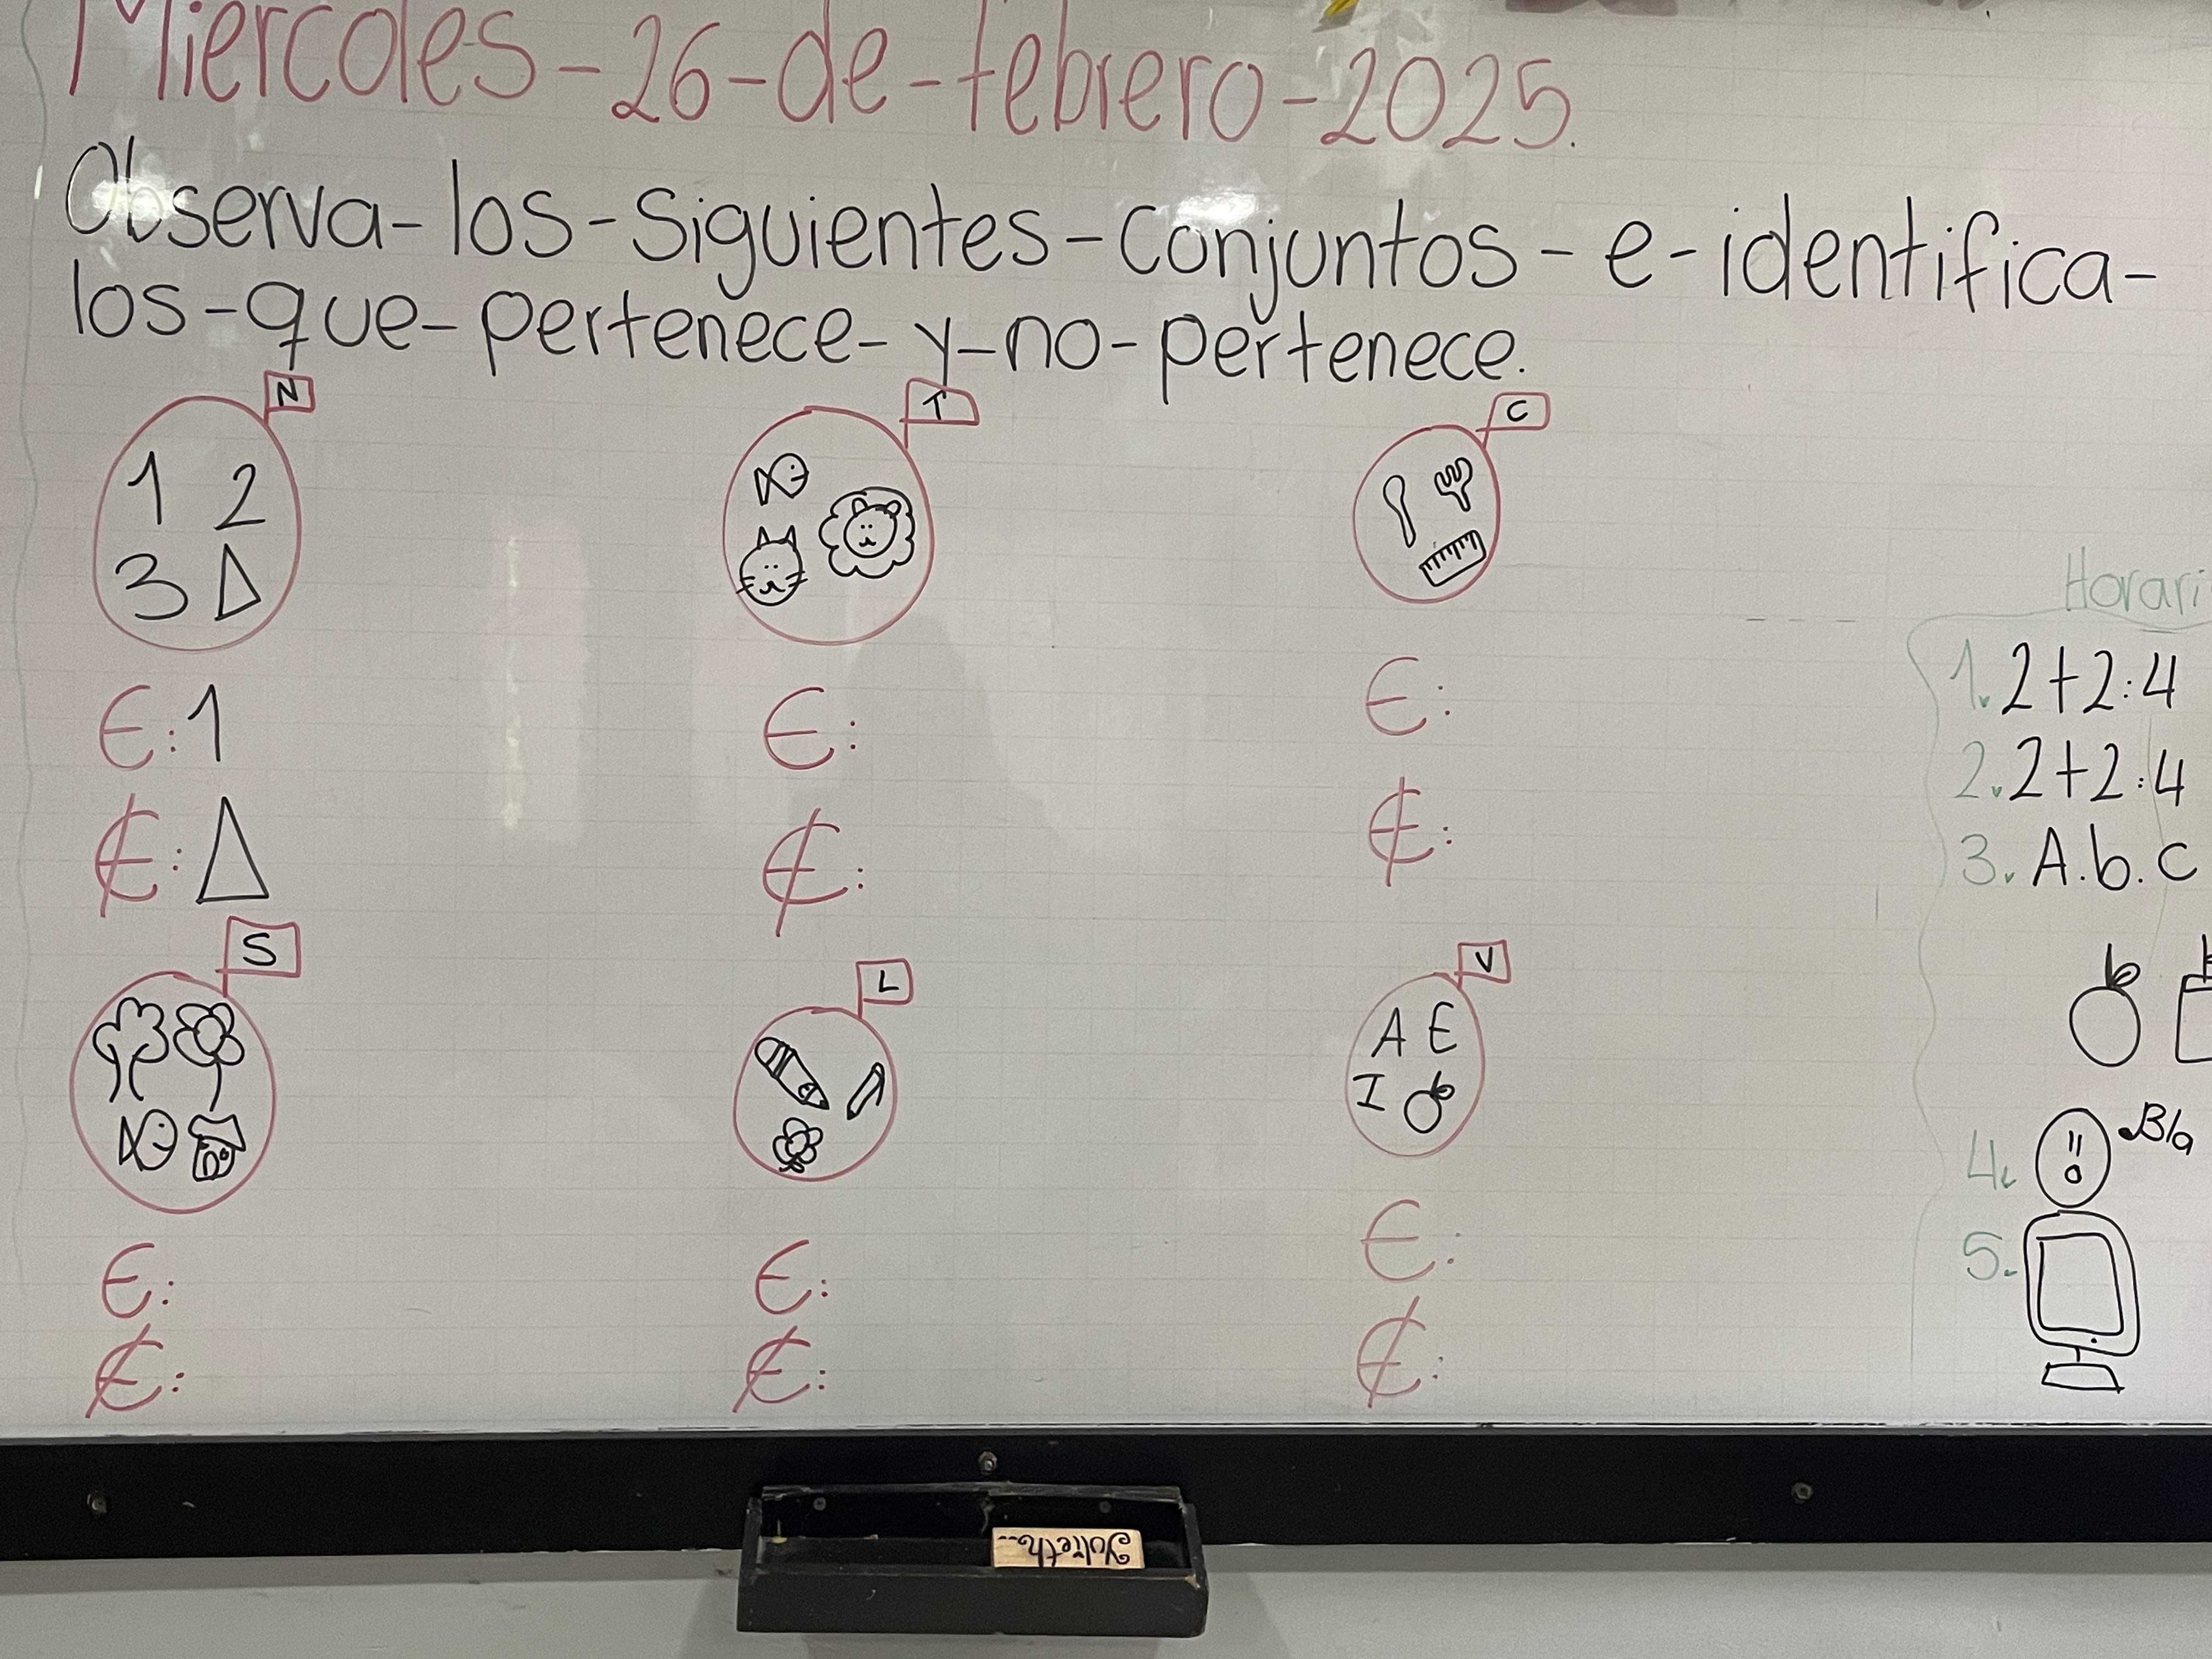 Miercoles-26-de-febrero-2025.
Observa-los-Siguientes-Conjuntos-e-identifica-
los-que-pertenece-y-no-pertenece.
N
1 2
3
∈: 1
∉:
T
∈:
∉:
C
∈:
∉:
S
∈:
∉:
L
∈:
∉:
V
A E
I
∈:
∉:
Horari
1. 2+2:4
2. 2+2:4
3. A.b.c
4. Bla
5.
Yulieth